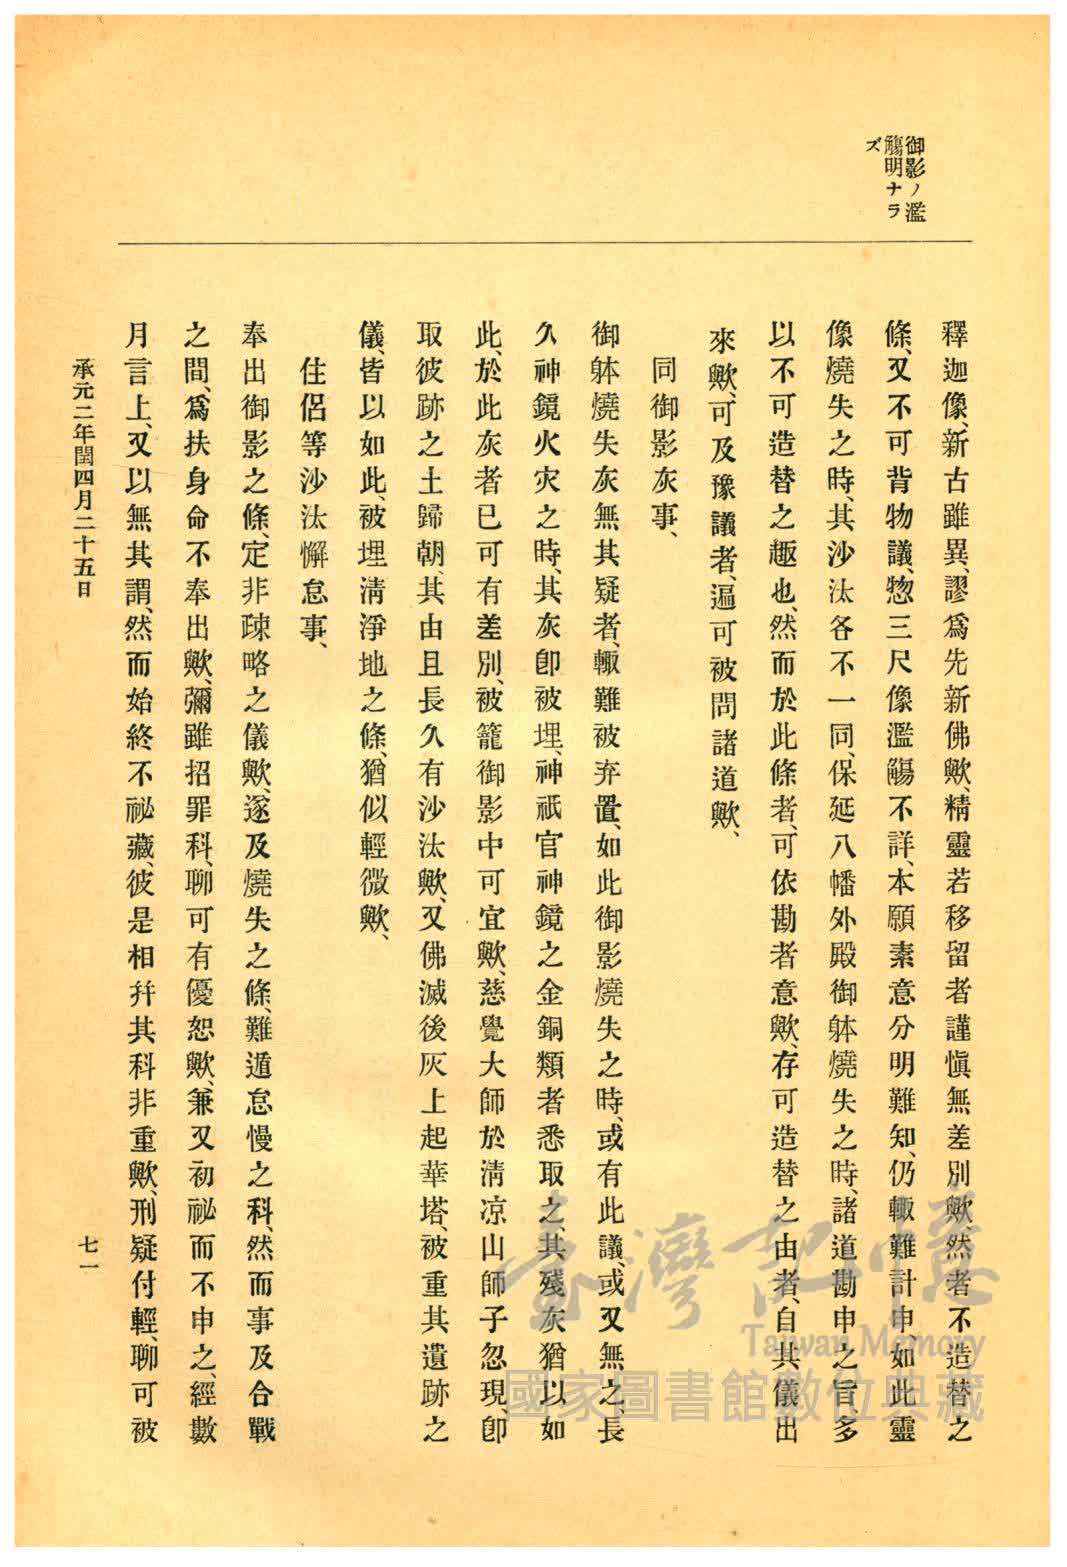 御影ノ濫
觴明ナラ
ズ
釋迦像、新古雖異、謬爲先新佛歟、精靈若移留者謹愼無差別歟、然者不造替之
條、又不可背物議、惣三尺像濫觴不詳、本願素意分明難知、仍輙難計申、如此靈
像燒失之時、其沙汰各不一同、保延八幡外殿御躰燒失之時、諸道勘申之旨多
以不可造替之趣也、然而於此條者、可依勘者意歟、存可造替之由者、自其儀出
來歟、可及豫議者、遍可被問諸道歟、
同御影灰事、
御躰燒失灰無其疑者、輙難被弃置、如此御影燒失之時、或有此議、或又無之、長
久神鏡火灾之時、其灰卽被埋、神祇官神鏡之金銅類者悉取之、其殘灰猶以如
此、於此灰者已可有差別、被籠御影中可宜歟、慈覺大師於淸凉山師子忽現卽
取彼跡之土歸朝、其由且長久有沙汰歟、又佛滅後灰上起華塔、被重其遺跡之
儀、皆以如此、被埋淸淨地之條、猶似輕微歟、
住侶等沙汰懈怠事、
奉出御影之條、定非疎略之儀歟、遂及燒失之條、難遁怠慢之科、然而事及合戰
之間、爲扶身命不奉出歟、彌雖招罪科、聊可有優恕歟、兼又初祕而不申之、經數
月言上、又以無其謂、然而始終不祕藏、彼是相幷其科非重歟、刑疑付輕、聊可被
承元二年閏四月二十五日
七一
臺灣記憶
Taiwan Memory
國家圖書館數位典藏